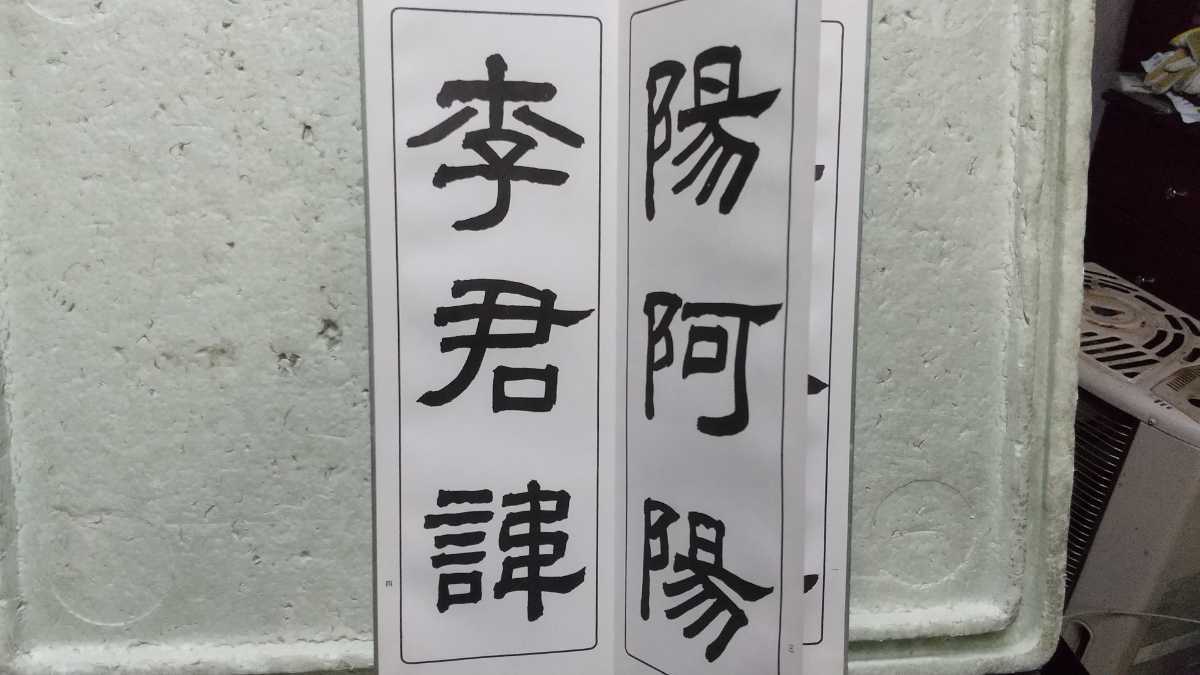 陽阿陽
李君諱
四